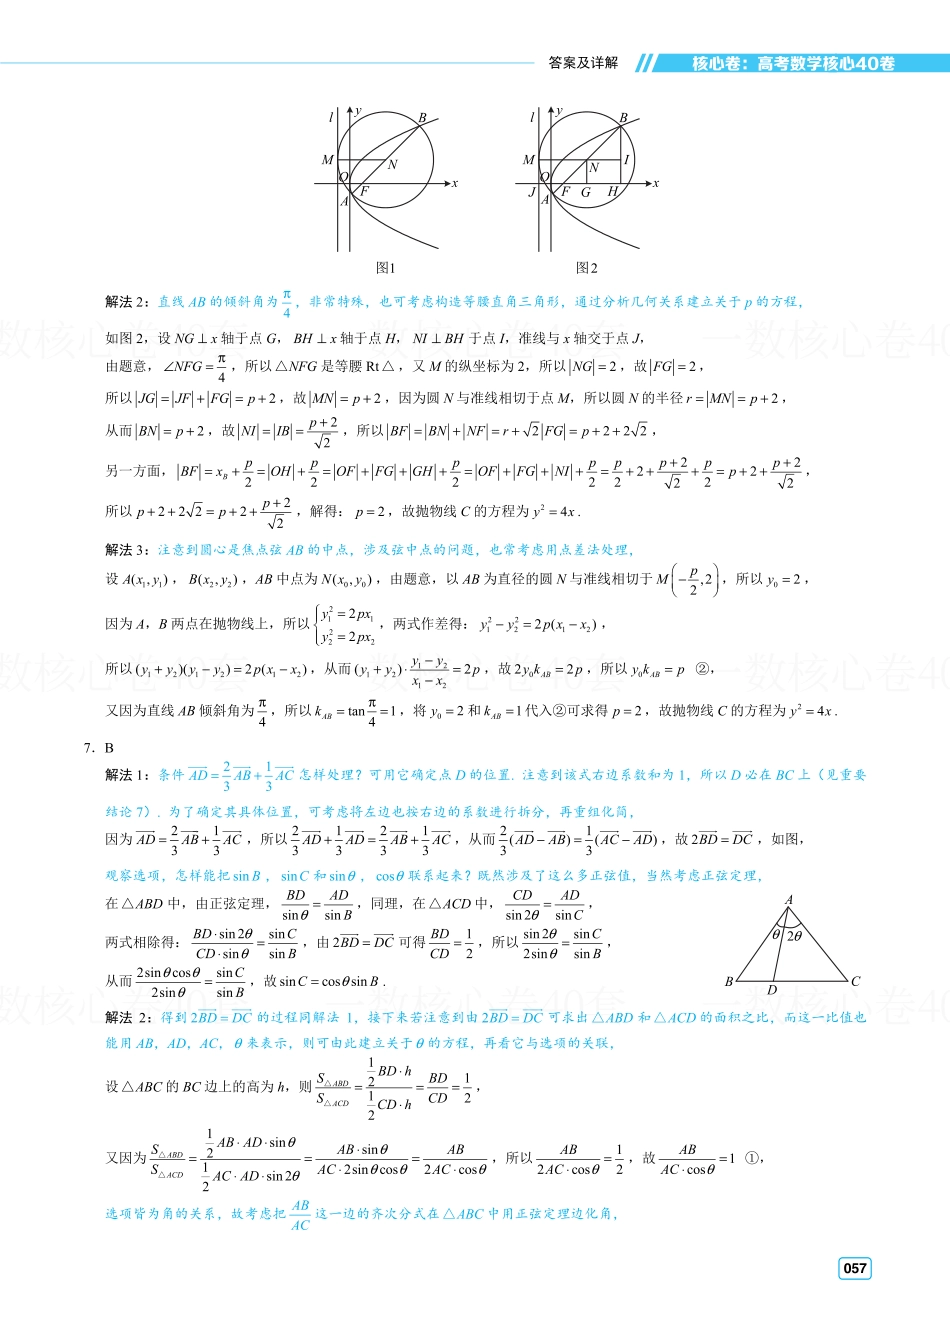 答案及详解
核心卷：高考数学核心40卷
l y B
M N
O F x
A
图1
l y B
M N I
O x
J A F G H
图2
解法 2：直线 AB 的倾斜角为 π/4，非常特殊，也可考虑构造等腰直角三角形，通过分析几何关系建立关于 p 的方程，
如图 2，设 NG⊥x 轴于点 G，BH⊥x 轴于点 H，NI⊥BH 于点 I，准线与 x 轴交于点 J，
由题意，∠NFG=π/4，所以△NFG 是等腰 Rt△，又 M 的纵坐标为 2，所以|NG|=2，故|FG|=2，
所以|JG|=|JF|+|FG|=p+2，故|MN|=p+2，因为圆 N 与准线相切于点 M，所以圆 N 的半径 r=|MN|=p+2，
从而|BN|=p+2，故|NI|=|IB|=(p+2)/√2，所以|BF|=|BN|+|NF|=r+√2|FG|=p+2+2√2，
另一方面，|BF|=x_B+p/2=|OH|+p/2=|OF|+|FG|+|GH|+p/2=|OF|+|FG|+|NI|+p/2=p/2+2+(p+2)/√2+p/2=p+2+(p+2)/√2，
所以 p+2+2√2=p+2+(p+2)/√2，解得：p=2，故抛物线 C 的方程为 y²=4x.
解法 3：注意到圆心是焦点弦 AB 的中点，涉及弦中点的问题，也常考虑用点差法处理，
设 A(x₁,y₁)，B(x₂,y₂)，AB 中点为 N(x₀,y₀)，由题意，以 AB 为直径的圆 N 与准线相切于 M(−p/2,2)，所以 y₀=2，
因为 A，B 两点在抛物线上，所以{y₁²=2px₁ y₂²=2px₂，两式作差得：y₁²−y₂²=2p(x₁−x₂)，
所以(y₁+y₂)(y₁−y₂)=2p(x₁−x₂)，从而(y₁+y₂)·(y₁−y₂)/(x₁−x₂)=2p，故 2y₀k_AB=2p，所以 y₀k_AB=p ②，
又因为直线 AB 倾斜角为 π/4，所以 k_AB=tan π/4=1，将 y₀=2 和 k_AB=1 代入②可求得 p=2，故抛物线 C 的方程为 y²=4x.
7．B
解法 1：条件 AD=2/3 AB+1/3 AC 怎样处理？可用它确定点 D 的位置. 注意到该式右边系数和为 1，所以 D 必在 BC 上（见重要
结论 7）. 为了确定其具体位置，可考虑将左边也按右边的系数进行拆分，再重组化简，
因为 AD=2/3 AB+1/3 AC，所以 2/3 AD+1/3 AD=2/3 AB+1/3 AC，从而 2/3(AD−AB)=1/3(AC−AD)，故 2BD=DC，如图，
观察选项，怎样能把 sin B，sin C 和 sin θ，cos θ 联系起来？既然涉及了这么多正弦值，当然考虑正弦定理，
在△ABD 中，由正弦定理，BD/sin θ=AD/sin B，同理，在△ACD 中，CD/sin 2θ=AD/sin C，
两式相除得：BD·sin 2θ/CD·sin θ=sin C/sin B，由 2BD=DC 可得 BD/CD=1/2，所以 sin 2θ/2sin θ=sin C/sin B，
从而 2sin θ cos θ/2sin θ=sin C/sin B，故 sin C=cos θ sin B.
A
θ 2θ
B D C
解法 2：得到 2BD=DC 的过程同解法 1，接下来若注意到由 2BD=DC 可求出△ABD 和△ACD 的面积之比，而这一比值也
能用 AB，AD，AC，θ 来表示，则可由此建立关于 θ 的方程，再看它与选项的关联，
设△ABC 的 BC 边上的高为 h，则 S△ABD/S△ACD=(1/2 BD·h)/(1/2 CD·h)=BD/CD=1/2，
又因为 S△ABD/S△ACD=(1/2 AB·AD·sin θ)/(1/2 AC·AD·sin 2θ)=AB·sin θ/AC·2sin θ cos θ=AB/2AC·cos θ，所以 AB/2AC·cos θ=1/2，故 AB/AC·cos θ=1 ①，
选项皆为角的关系，故考虑把 AB/AC 这一边的齐次分式在△ABC 中用正弦定理边化角，
057